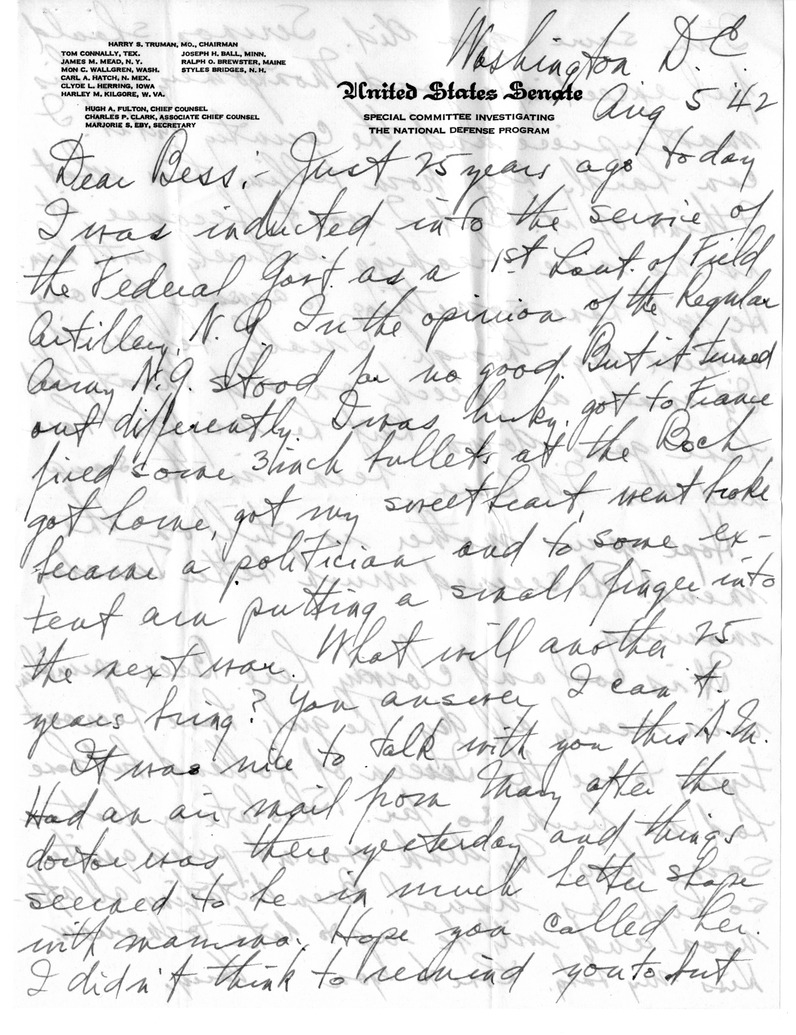 HARRY S. TRUMAN, MO., CHAIRMAN
TOM CONNALLY, TEX.
JAMES M. MEAD, N. Y.
MON C. WALLGREN, WASH.
CARL A. HATCH, N. MEX.
CLYDE L. HERRING, IOWA
HARLEY M. KILGORE, W. VA.
JOSEPH H. BALL, MINN.
RALPH O. BREWSTER, MAINE
STYLES BRIDGES, N. H.
HUGH A. FULTON, CHIEF COUNSEL
CHARLES P. CLARK, ASSOCIATE CHIEF COUNSEL
MARJORIE S. EBY, SECRETARY
United States Senate
SPECIAL COMMITTEE INVESTIGATING
THE NATIONAL DEFENSE PROGRAM
Washington D. C.
Aug 5 '42
Dear Bess:- Just 25 years ago today
I was inducted into the service of
the Federal Gov't. as a 1st Lieut. of Field
Artillery, N. G. In the opinion of the Regular
Army N.G. stood for no good. But it turned
out differently. I was lucky, got to France
fired some 3 inch bullets at the Boch
got home, got my sweetheart, went broke
became a politician and to some ex-
tent am putting a small finger into
the next war. What will another 25
years bring? You answer, I can't.
It was nice to talk with you this A.M.
Had an air mail from Mary after the
doctor was there yesterday and things
seemed to be in much better shape
with mamma. Hope you called her.
I didn't think to remind you to but